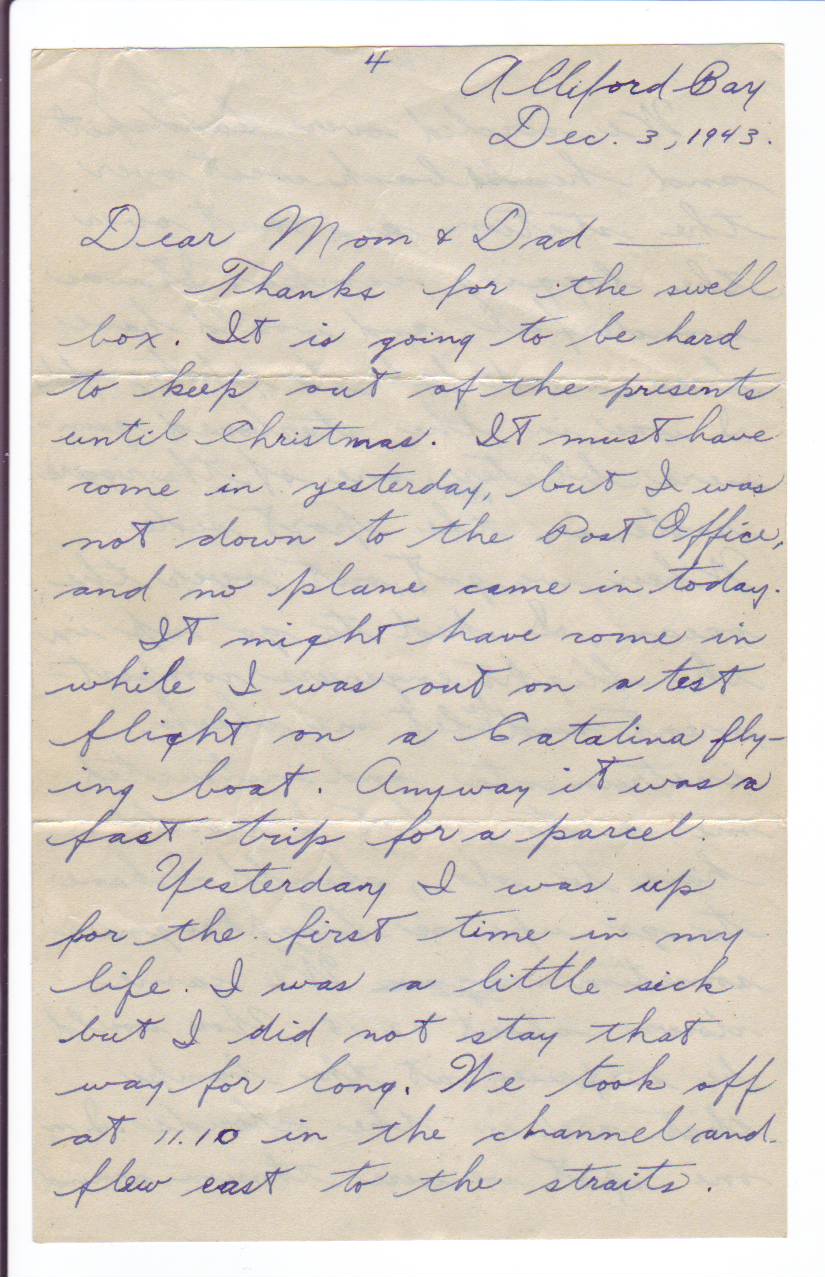 4
Alliford Bay
Dec. 3, 1943.
Dear Mom & Dad —
Thanks for the swell
box. It is going to be hard
to keep out of the presents
until Christmas. It must have
come in yesterday, but I was
not down to the Post Office,
and no plane came in today.
It might have come in
while I was out on a test
flight on a Catalina fly-
ing boat. Anyway it was a
fast trip for a parcel.
Yesterday I was up
for the first time in my
life. I was a little sick
but I did not stay that
way for long. We took off
at 11.10 in the channel and
flew east to the straits.